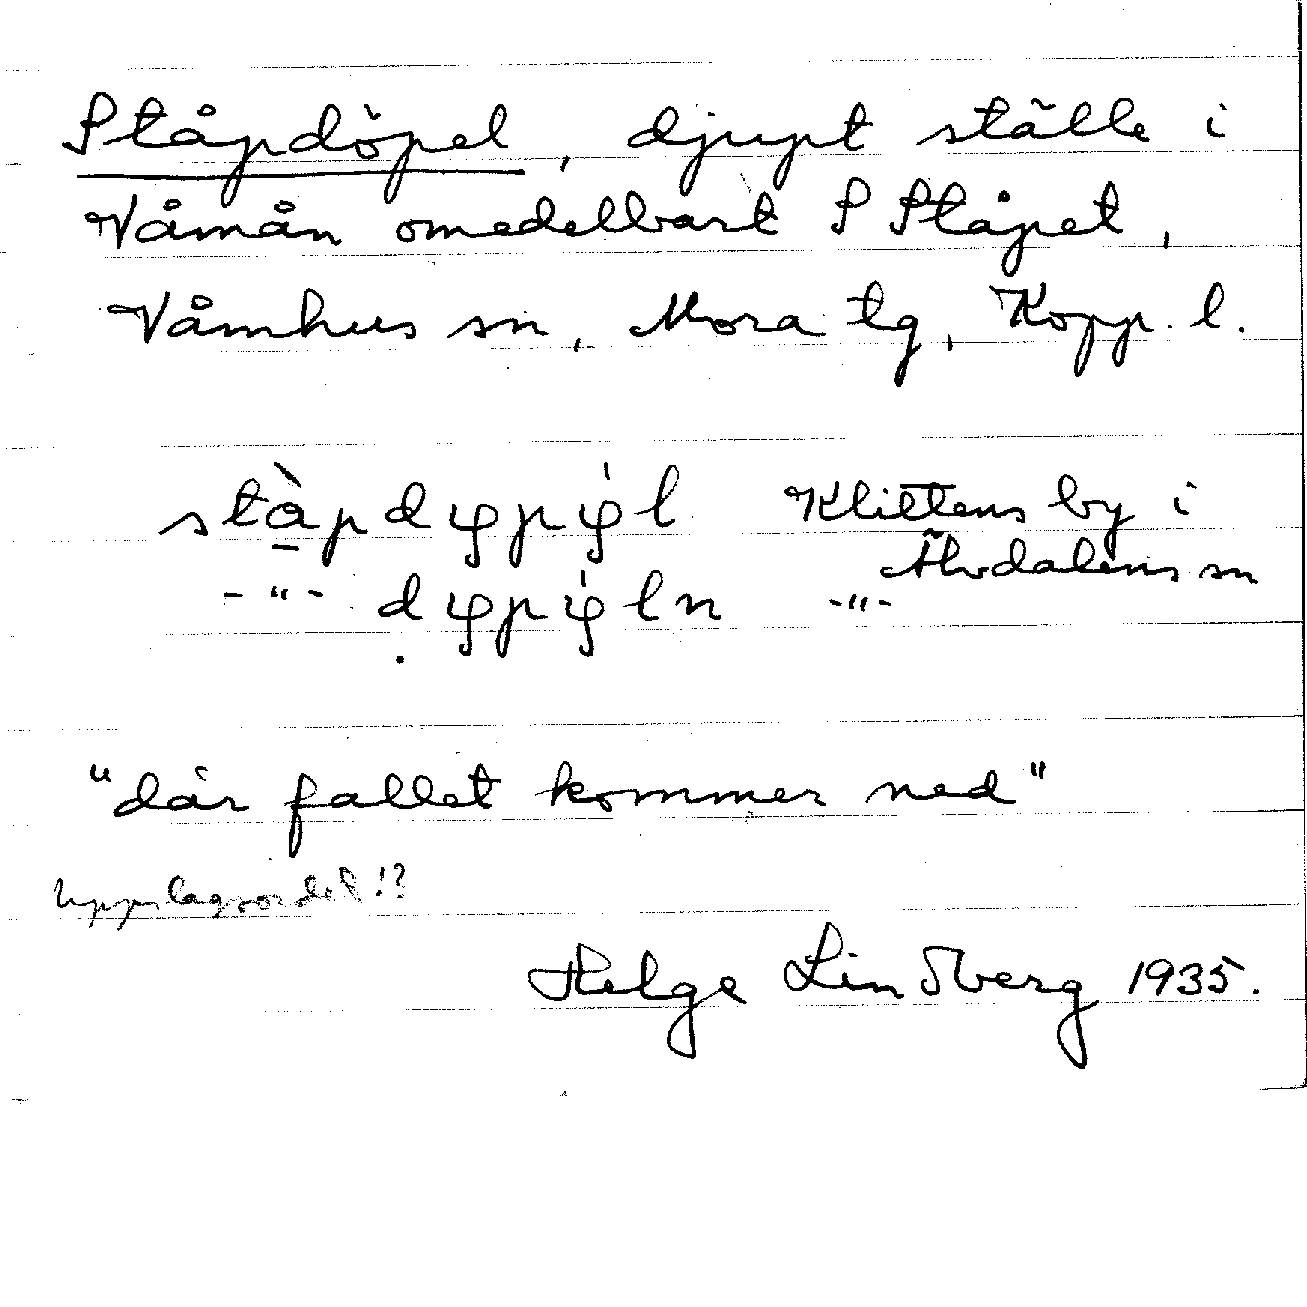 Ståpdöpel, djupt ställe i
Våmån omedelbart S Ståpet,
Våmhus sn, Mora tg, Kopp. l.
stàpdφpφ̇l Klittens by i
Älvdalens sn
-"- dφpφ̇ln -"-
"där fallet kommer ned"
Uppslagsordet!?
Helge Lindberg 1935.